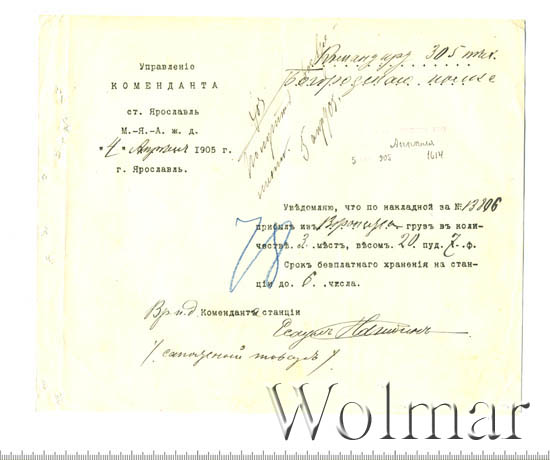 Управленіе
КОМЕНДАНТА
ст. Ярославль
М.-Я.-А. ж. д.
"4" Апрѣля 1905 г.
г. Ярославль.
Командиру 305 пѣх.
5 апр 905.
5 905 1614
78
Увѣдомляю, что по накладной за № 13806
прибылъ изъ грузъ въ коли-
чествѣ 3 мѣстъ, вѣсомъ 20 пуд. 7 ф.
Срокъ безплатнаго храненія на стан-
ціи до 6 числа.
Вр и.д Коменданта станціи
Есаулъ
/ сапожный товаръ /
Wolmar